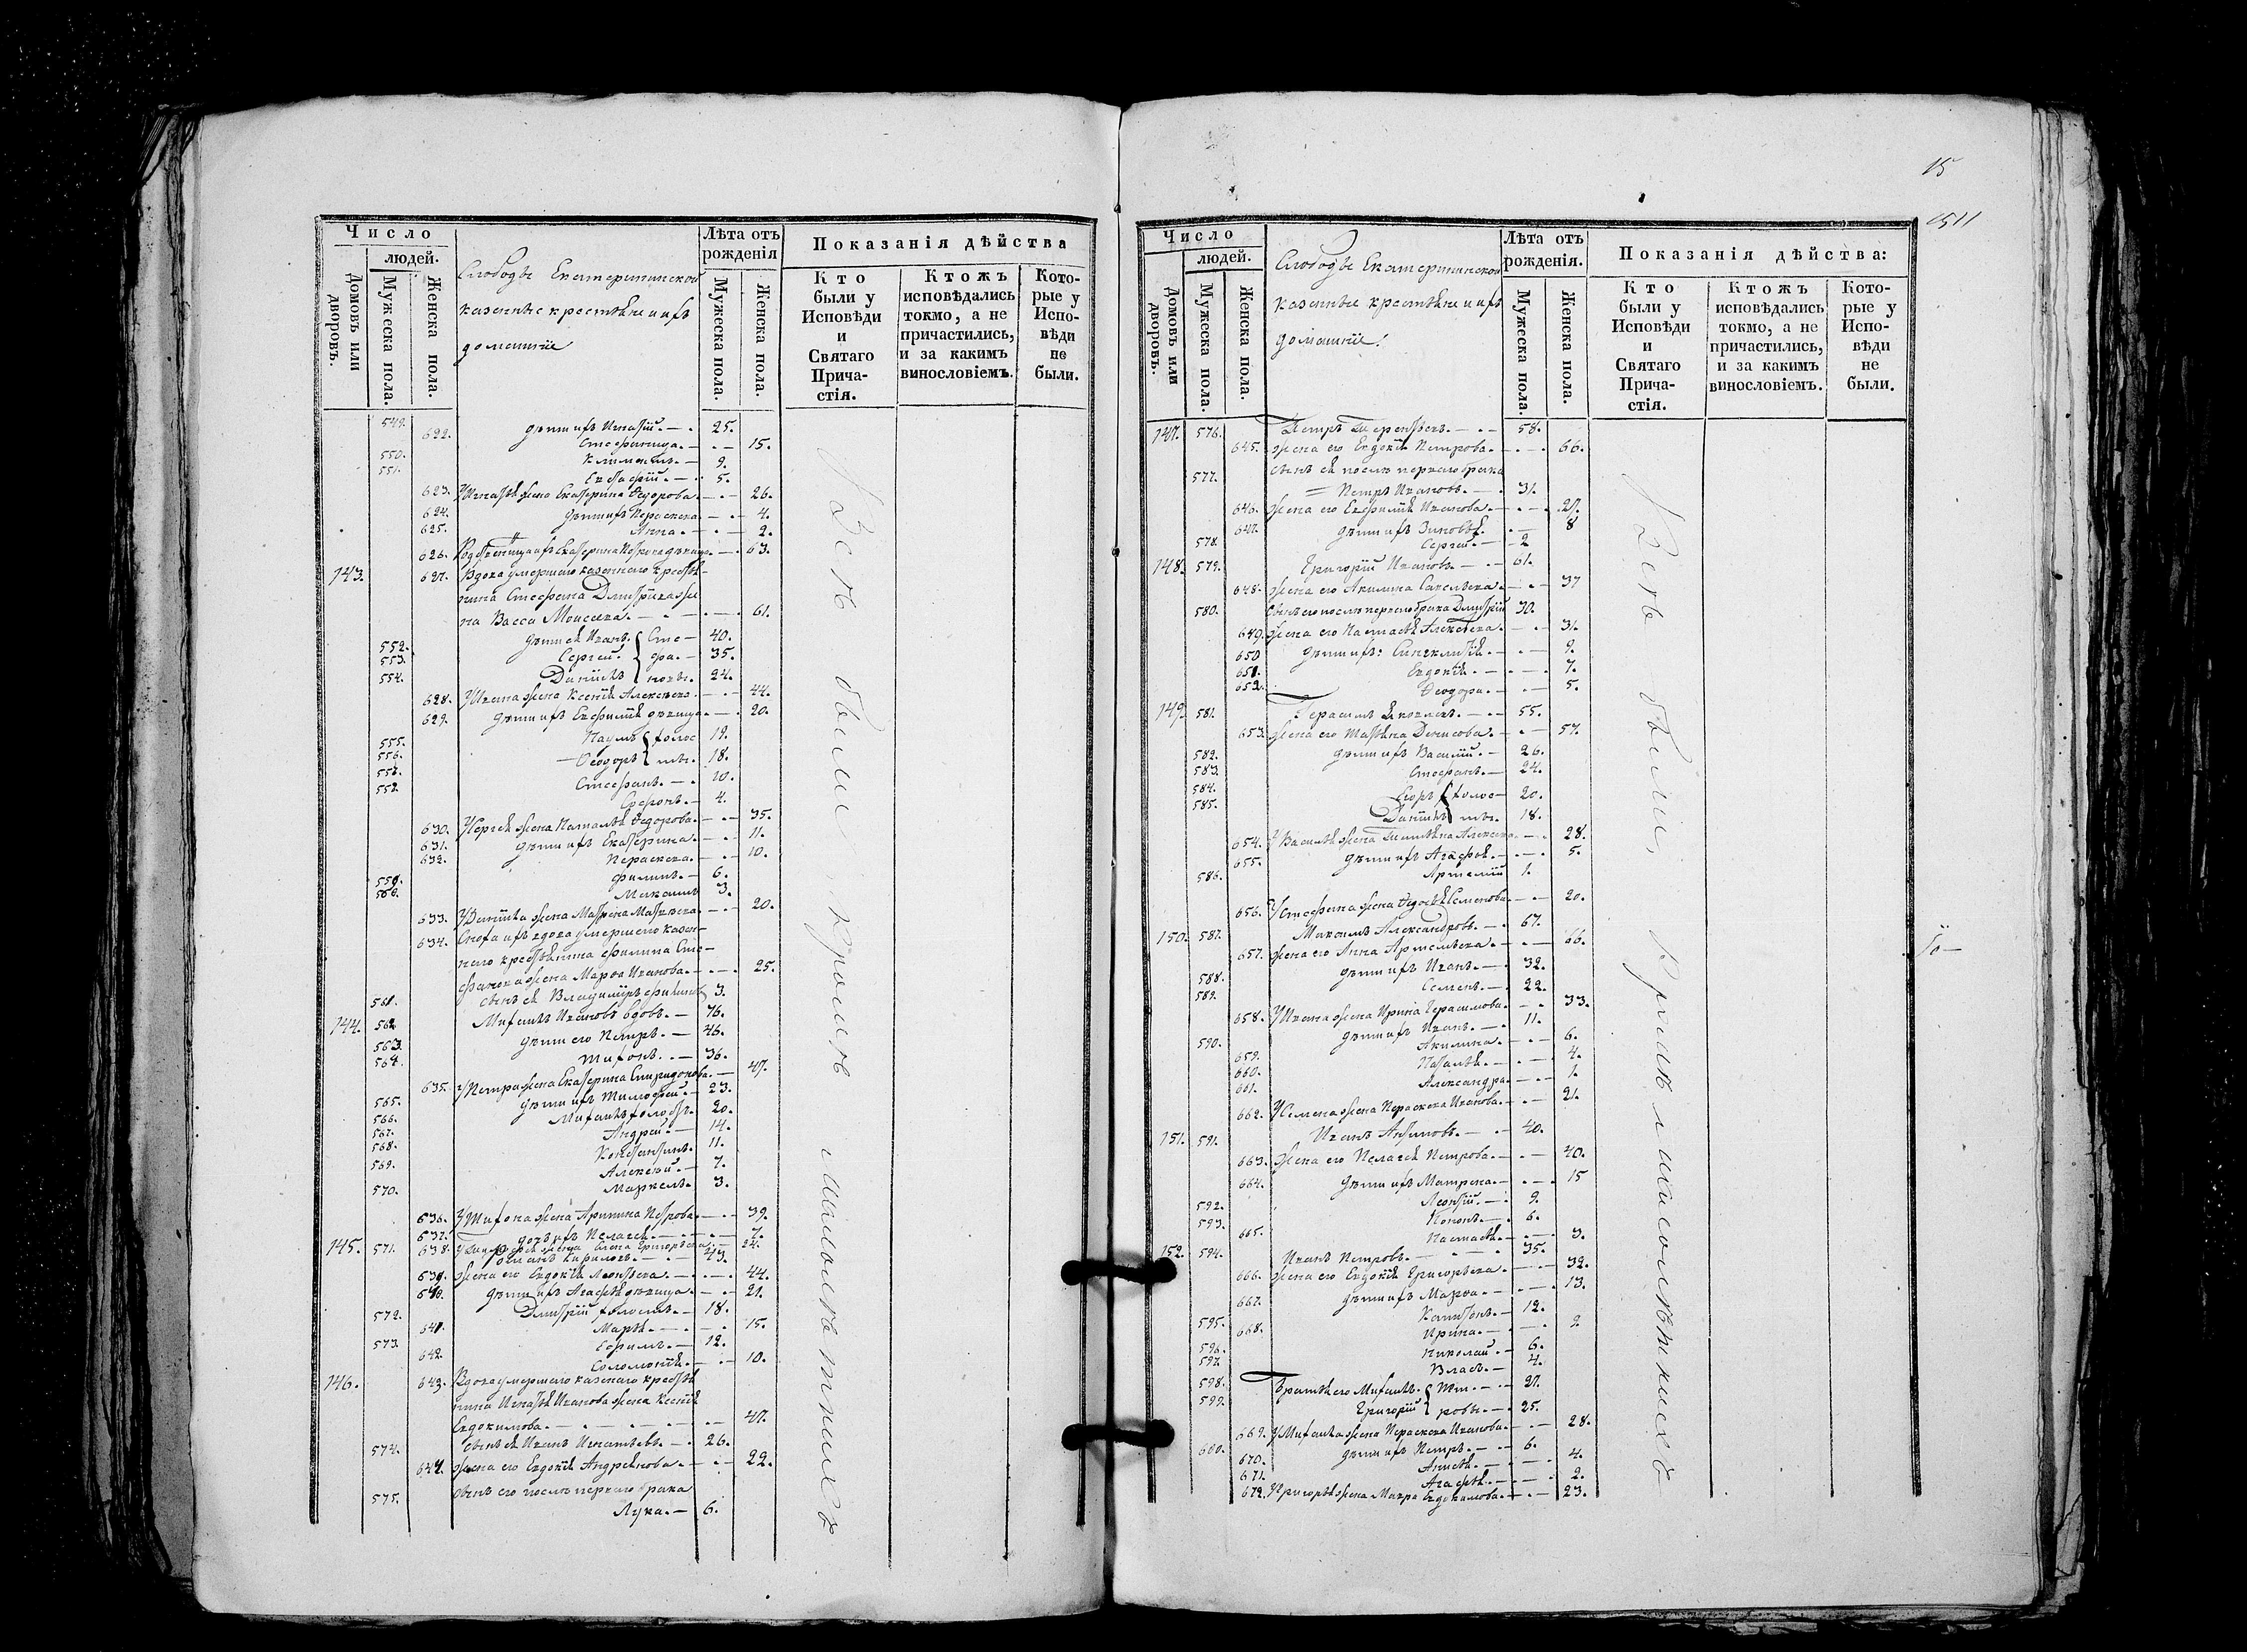 Число
людей.
Домовъ или дворовъ.
Мужеска пола.
Женска пола.
Слободы Екатерининской
казенные крестьяне и ихъ
домашніе
Лѣта отъ
рожденія
Мужеска пола.
Женска пола.
Показанія дѣйства
Кто
были у
Исповѣди
и
Святаго
Прича-
стія.
Ктожъ
исповѣдались
токмо, а не
причастились,
и за какимъ
винословіемъ.
Кото-
рые у
Испо-
вѣди
не
были.
549. дѣти ихъ Игнатій. 25.
622. Стефанида. 15.
550. Климентъ. 9.
551. Евстафій. 5.
623. У Игнатія жена Екатерина Ѳедорова. 26.
624. дѣти ихъ Параскева. 4.
625. Анна. 2.
626. Екатерина Петрова дѣвица. 63.
143. 627. Вдова умершаго казеннаго крестья-
нина Стефана Дмитріева же-
на Васса Моисеева. 61.
552. дѣти ея Иванъ. Сте- 40.
553. Сергей. фа- 35.
554. Даніилъ новы. 24.
628. У Ивана жена Ксенія Алексѣева. 44.
629. дѣти ихъ Евфимія дѣвица. 20.
555. Наумъ холос 19.
556. Ѳеодоръ ты. 18.
Стефанъ. 10.
Софронъ. 4.
630. У Сергея жена Наталья Ѳедорова. 35.
631. дѣти ихъ Екатерина. 11.
632. Параскева. 10.
559. Филипъ. 6.
560. Максимъ 3.
633. У Даніила жена Матрена Матвѣева. 20.
634. Сноха ихъ вдова умершаго казен-
наго крестьянина Филипа Сте-
фанова жена Марѳа Иванова. 25.
561. сынъ ея Владиміръ Филиповъ 3.
144. 562. Михаилъ Ивановъ вдовъ. 76.
563. дѣти его Петръ. 46.
564. Тихонъ. 36.
635. У Петра жена Екатерина Спиридонова. 47.
565. дѣти ихъ Тимофей. 23.
566. Михаилъ холостъ. 20.
567. Андрей. 14.
568. Константинъ. 11.
569. Алексей. 7.
570. Маркелъ. 3.
636. У Тихона жена Аринина Петрова. 39.
637. дочь ихъ Пелагея. 7.
638. У Тимофея жена Елена Григорьева. 24.
145. 571. 43.
639. жена его Евдокія Леонтьева. 44.
640. дѣти ихъ Агафія дѣвица. 21.
572. Дмитрій холостъ. 18.
641. Марья. 15.
573. Ефимъ. 12.
642. Соломонія. 10.
146. 643. Вдова умершаго казеннаго крестья
нина Игнатія Иванова жена Ксенія
Евдокимова. 47.
574. сынъ ея Иванъ Игнатьевъ. 26.
644. жена его Евдокія Андреянова. 22.
575. сынъ его послѣ перваго брака
Лука. 6.
Всѣ были кромѣ малолѣтнихъ
15
511
Число
людей.
Домовъ или дворовъ.
Мужеска пола.
Женска пола.
Слободы Екатерининской
казенные крестьяне и ихъ
домашніе.
Лѣта отъ
рожденія.
Мужеска пола.
Женска пола.
Показанія дѣйства:
Кто
были у
Исповѣди
и
Святаго
Прича-
стія.
Ктожъ
исповѣдались
токмо, а не
причастились,
и за какимъ
винословіемъ.
Кото-
рые у
Испо-
вѣди
не
были.
147. 576. Петръ Терентьевъ. 58.
645. жена его Евдокія Петрова. 66.
577. сынъ ея послѣ перваго брака
Петръ Ивановъ. 31.
646. жена его Евфимія Иванова. 27.
647. дѣти ихъ Зиновья. 8
578. Сергей. 2
148. 579. Григорій Ивановъ. 61.
648. жена его Акилина Савельева. 37
580. Сынъ его послѣ перваго брака Дмитрій 30.
649. жена его Настасья Алексѣева. 31.
650 дѣти ихъ: Синклитія. 9.
651. Евдокія. 7.
652. Ѳеодора. 5.
149. 581. Герасимъ Яковлевъ. 55.
653. жена его Татьяна Денисова. 57.
582. дѣти ихъ Василій. 26.
583. Стефанъ. 24.
584. Егоръ холос 20.
585. Даніилъ ты. 18.
654. У Василья жена Татьяна Алексѣева. 28.
655. дѣти ихъ Агафья. 5.
586. Артемій 1.
656. У Стефана жена Ѳедосья Семенова 20.
150. 587. Максимъ Александровъ. 67.
657. жена его Анна Артемьева. 66.
588. дѣти ихъ Иванъ. 32.
589. Семенъ. 22.
658. У Ивана жена Ирина Герасимова. 33.
590. дѣти ихъ Иванъ. 11.
659. Акилина. 6.
660. Наталья. 4.
661. Александра. 1.
662. У Семена жена Параскева Иванова. 21.
151. 591. Иванъ Антиповъ. 40.
663. жена его Пелагея Петрова. 40.
664. дѣти ихъ Матрена. 15
592. Леонтій. 9.
593. Кононъ. 6.
665. Настасья. 3.
152. 594. Иванъ Петровъ. 35.
666. жена его Евдокія Григорьева. 32.
667. дѣти ихъ Марѳа. 13.
595. Капитонъ. 12.
668. Ирина. 9
596. Николай. 6.
597. Власъ. 4.
598. Братья его Михаилъ. Пет- 27.
599. Григорій ровы. 25.
669. У Михаила жена Параскева Иванова. 28.
600. дѣти ихъ Петръ. 6.
670. Анисья. 4.
671. Агафья. 2.
672. У Григорья жена Мавра Евдокимова. 23.
Всѣ были, кромѣ малолѣтнихъ